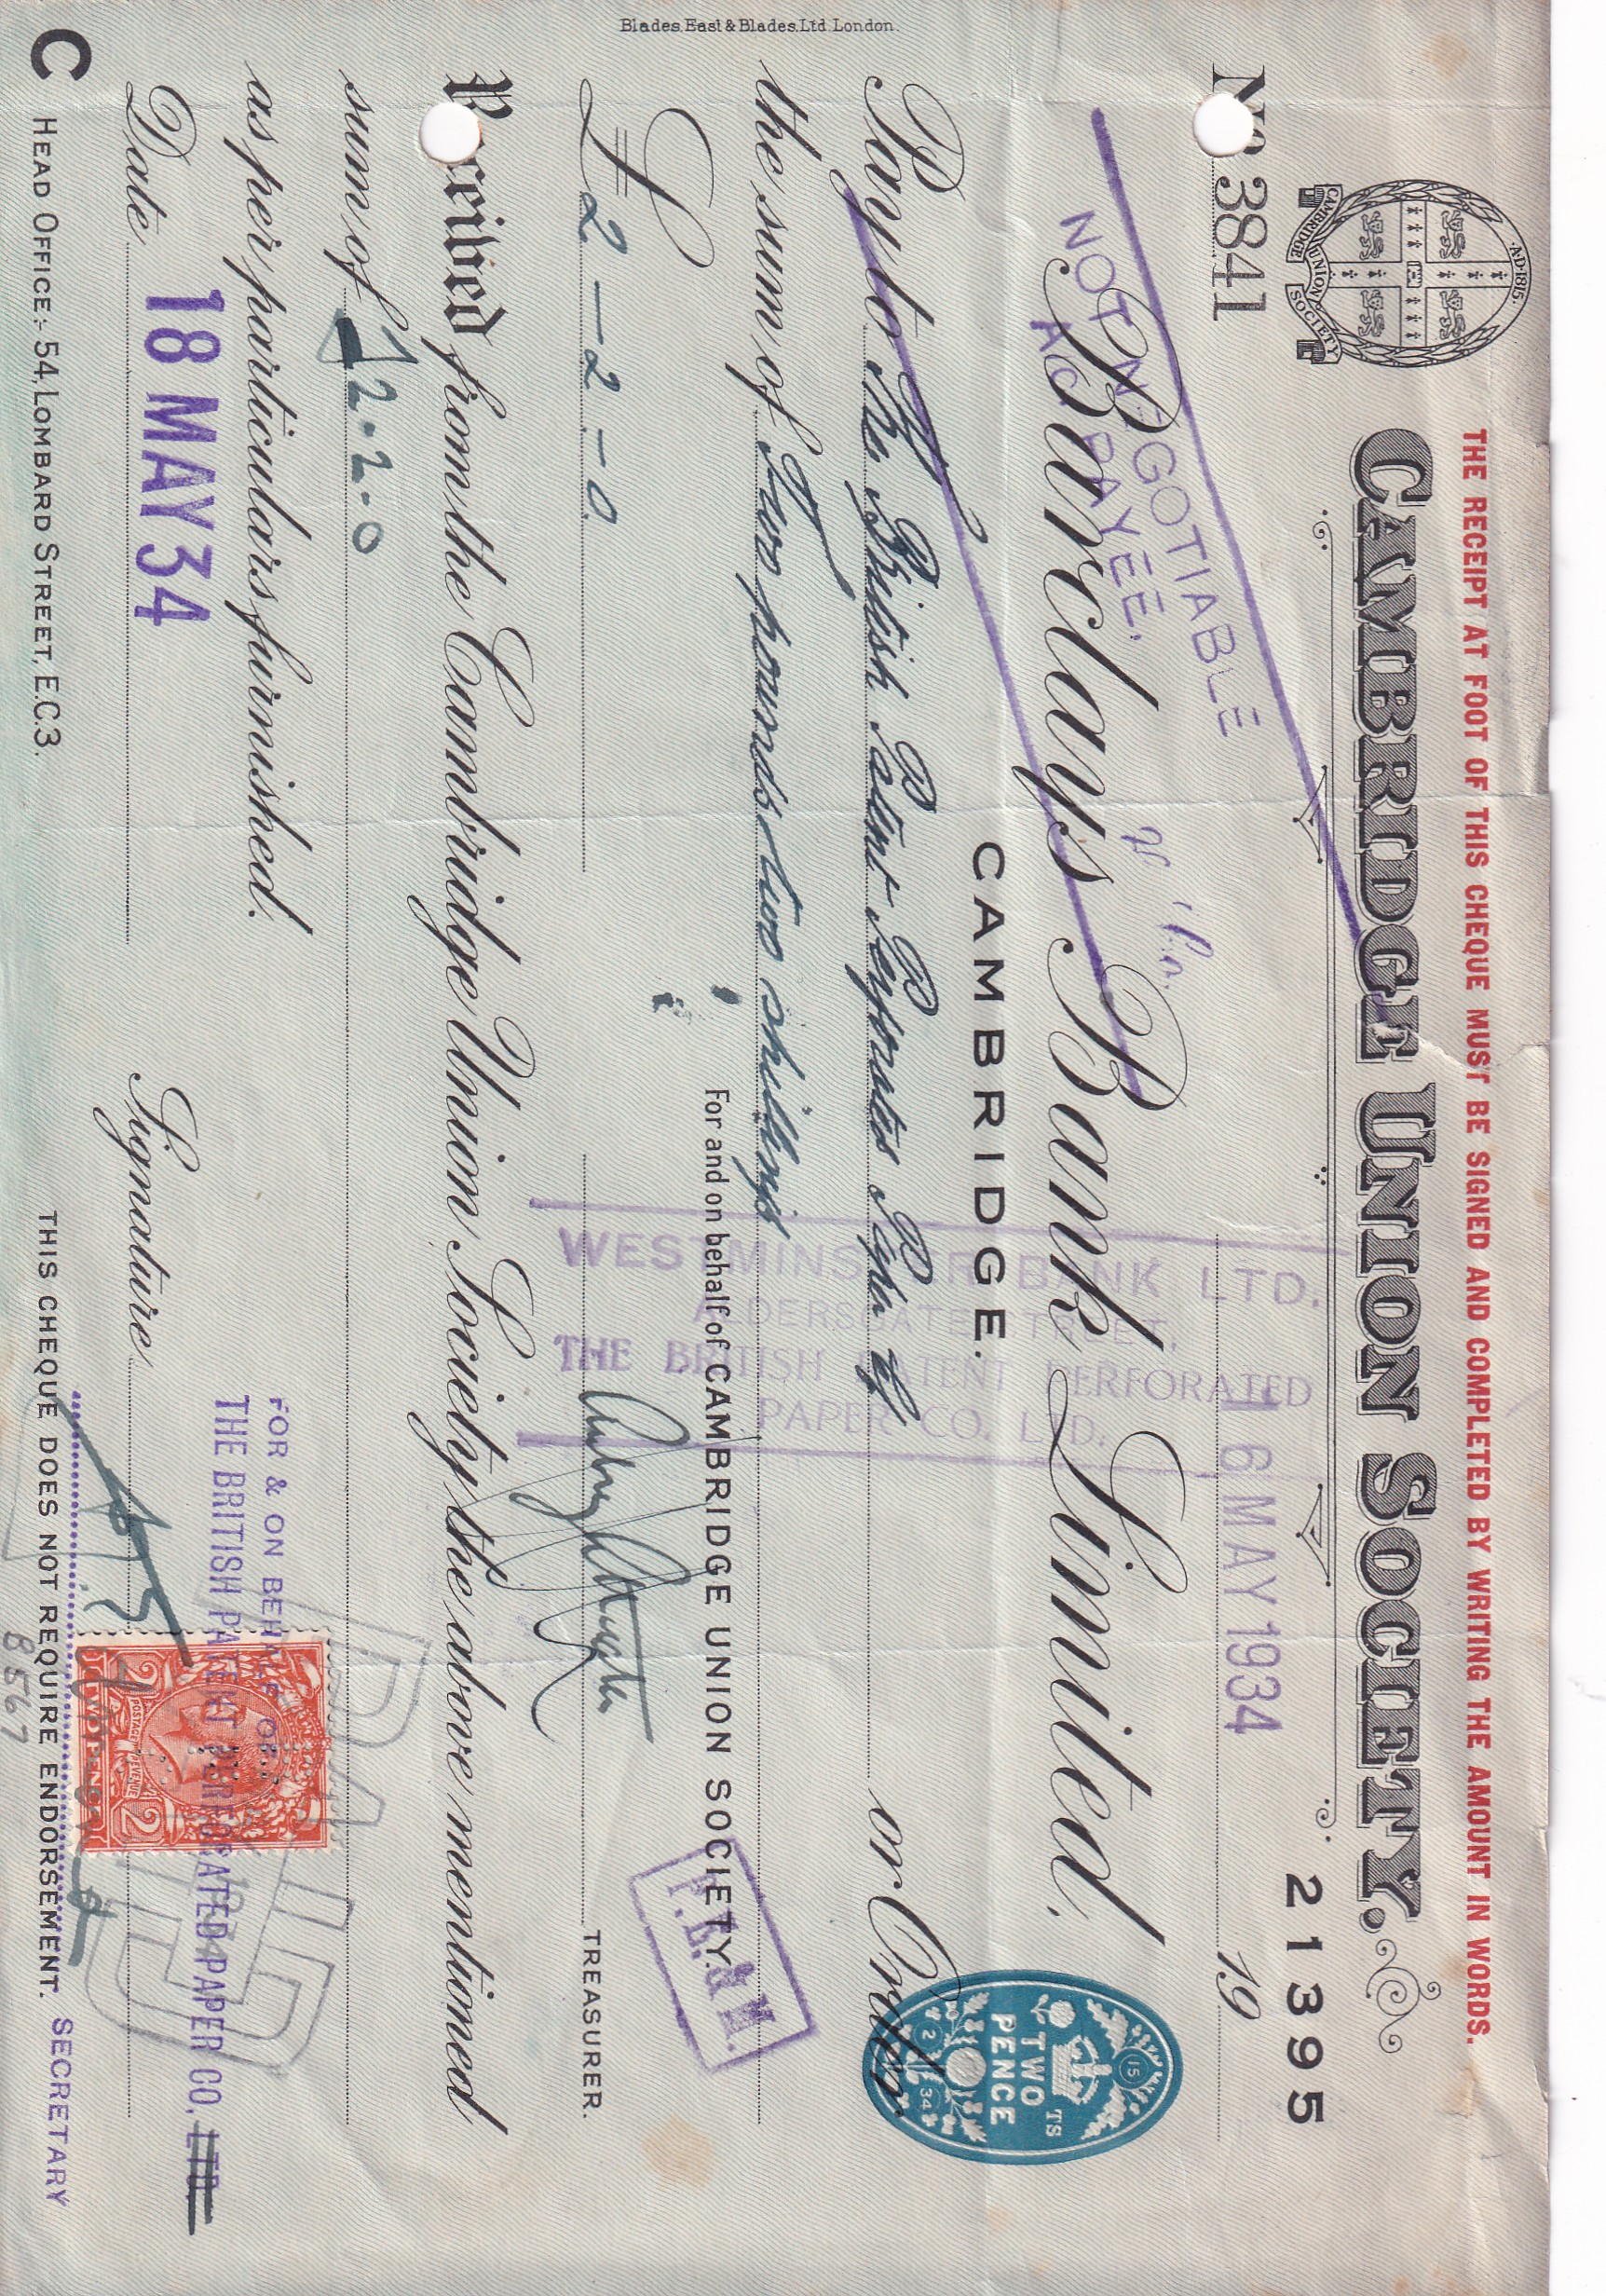 THE RECEIPT AT FOOT OF THIS CHEQUE MUST BE SIGNED AND COMPLETED BY WRITING THE AMOUNT IN WORDS.
CAMBRIDGE UNION SOCIETY.
A.D. 1815.
CAMBRIDGE UNION SOCIETY
21395
No 3841
16 MAY 1934
19
NOT NEGOTIABLE
A/C PAYEE.
Barclays Bank Limited,
CAMBRIDGE.
WESTMINSTER BANK LTD.
ALDERSGATE STREET,
THE BRITISH PATENT PERFORATED
PAPER CO. LTD.
15
TS
TWO
PENCE
2
34
Pay to The British Patent Perforated Paper Co or Order
the sum of Two pounds two shillings
For and on behalf of CAMBRIDGE UNION SOCIETY.
P.B. & M.
£ 2-2-0
TREASURER.
Blades, East & Blades, Ltd. London.
Received from the Cambridge Union Society the above mentioned
sum of 2.2.0
as per particulars furnished.
FOR & ON BEHALF OF
THE BRITISH PATENT PERFORATED PAPER CO, LTD
Date 18 MAY 34
Signature
POSTAGE REVENUE
2 2
TWOPENCE
1934
SECRETARY
C HEAD OFFICE:- 54, LOMBARD STREET, E.C.3.
THIS CHEQUE DOES NOT REQUIRE ENDORSEMENT.
8567